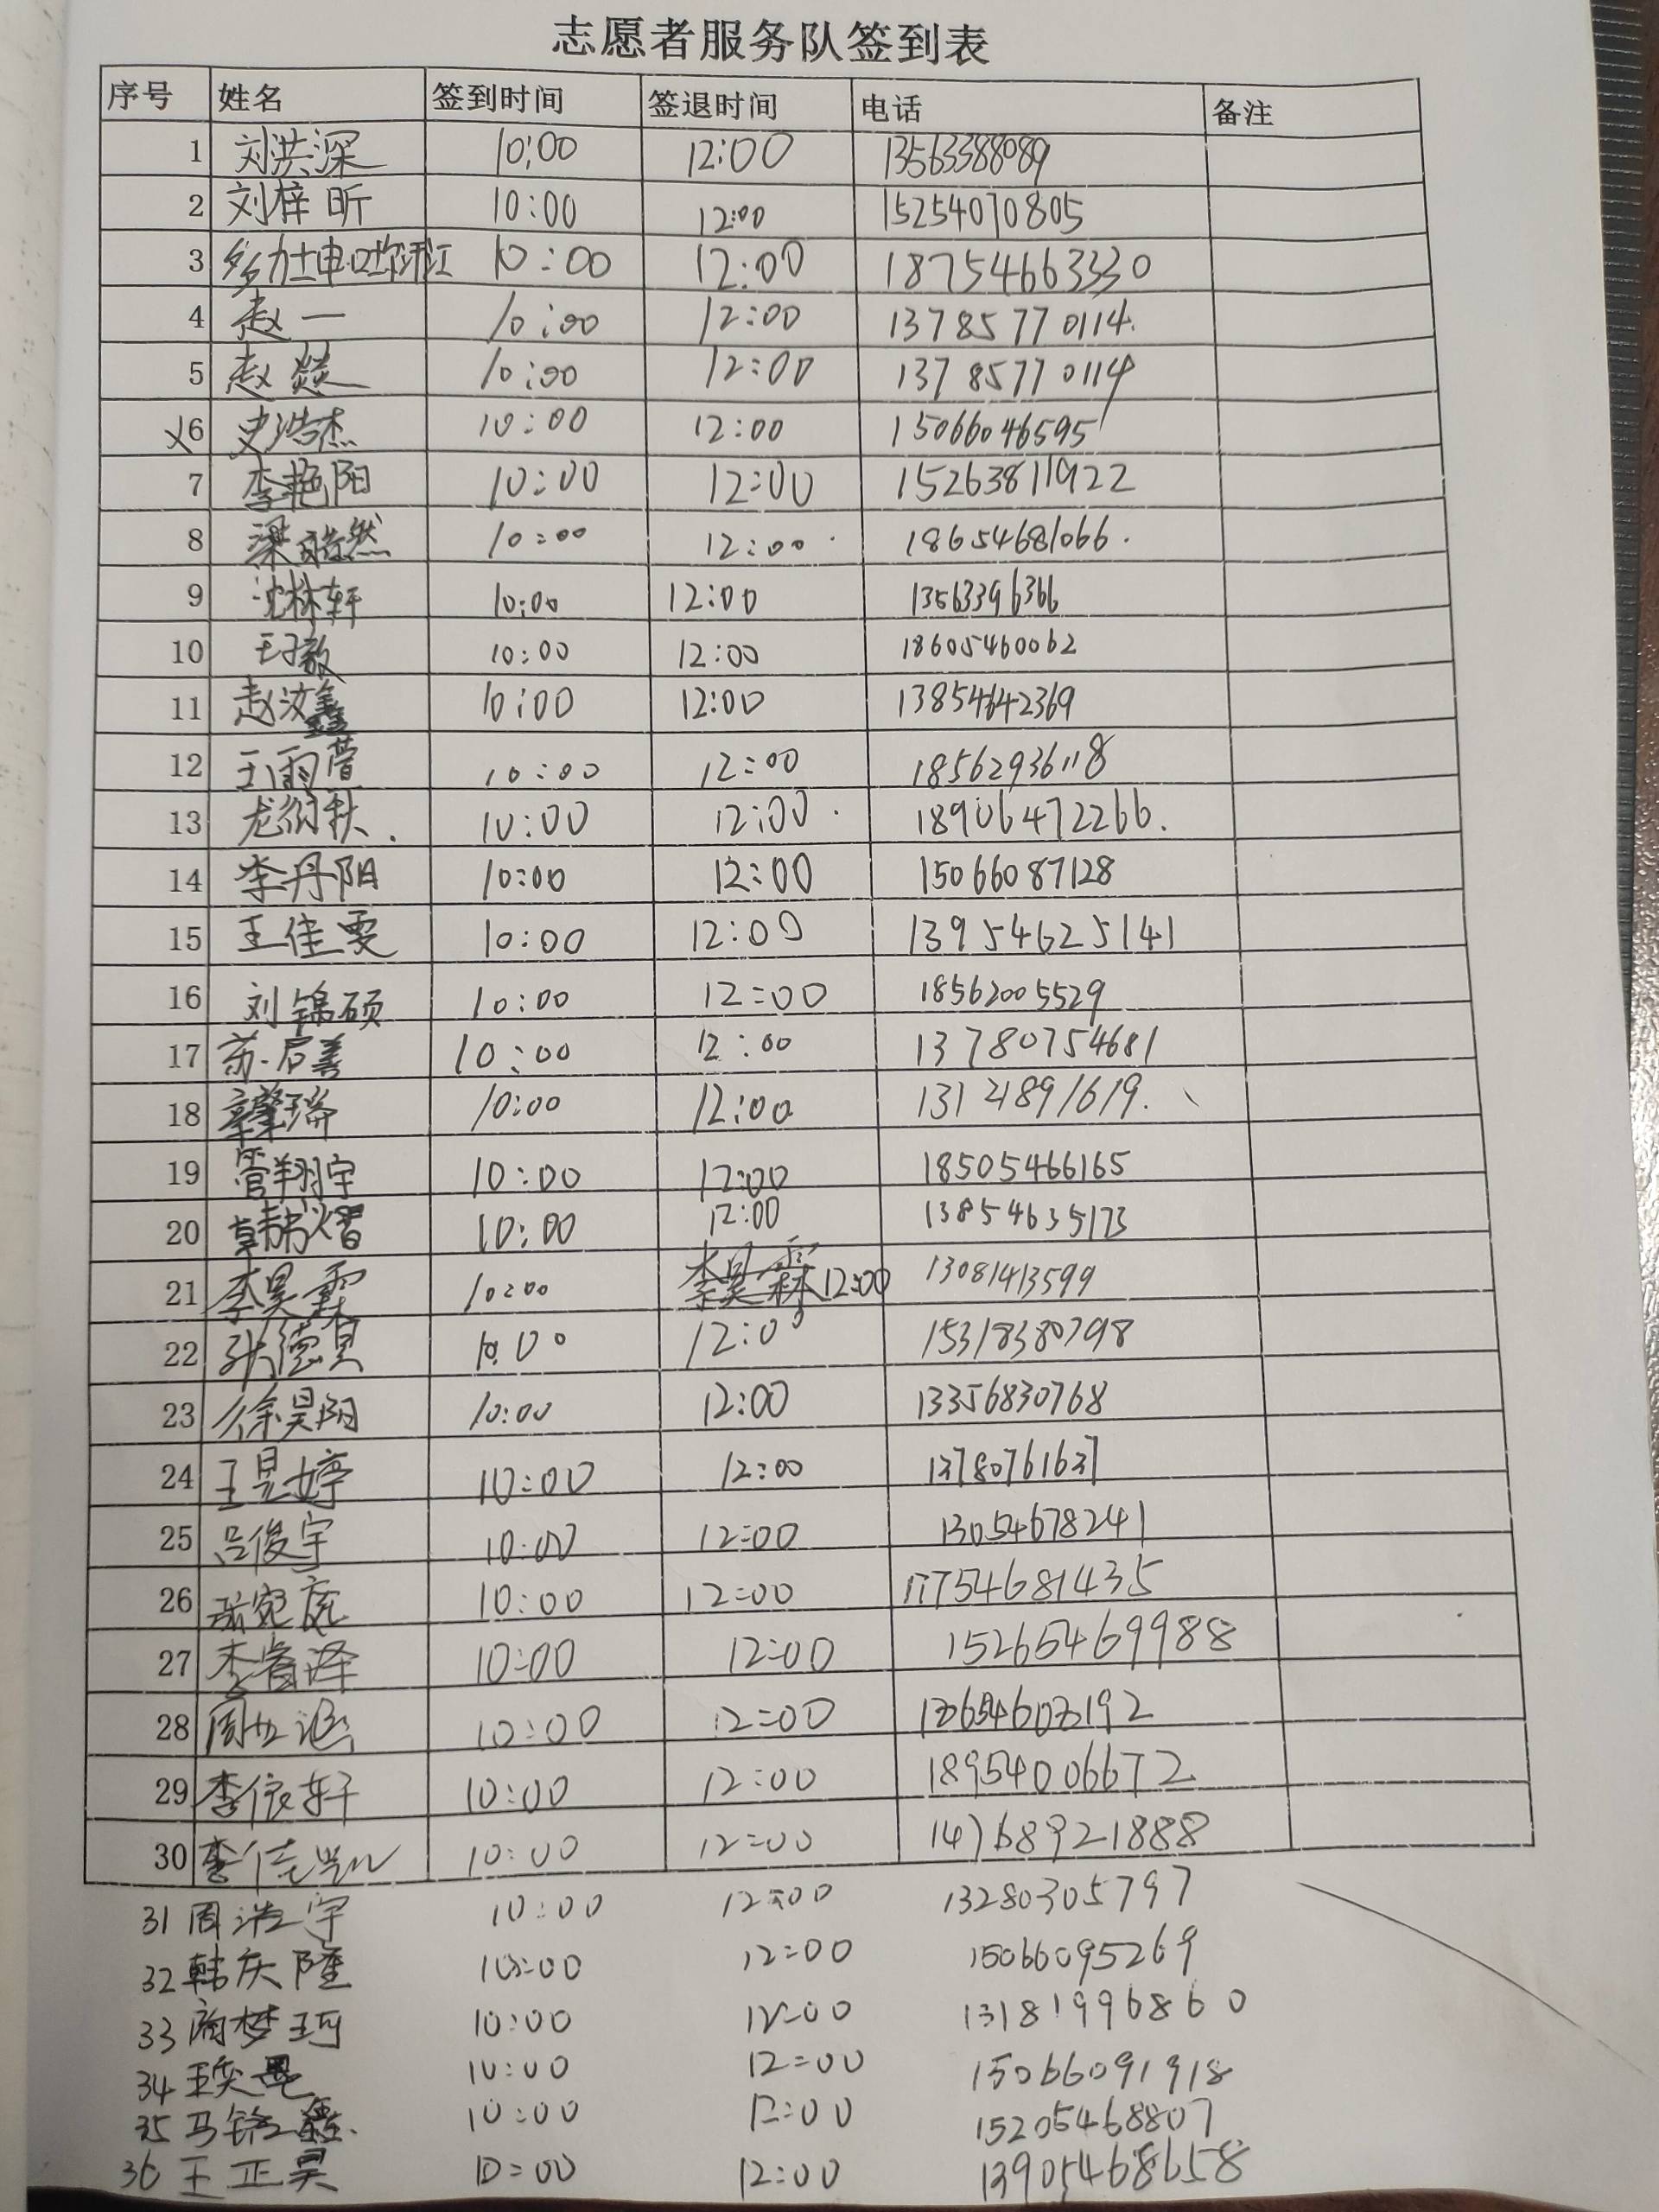 志愿者服务队签到表
序号 姓名 签到时间 签退时间 电话 备注
1 刘洪深 10:00 12:00 13563388089
2 刘梓昕 10:00 12:00 15254070805
3 10:00 12:00 18754663330
4 赵一 10:00 12:00 13785770114.
5 赵燚 10:00 12:00 13785770114
6 史浩杰 10:00 12:00 15066046595
7 李艳阳 10:00 12:00 15263811922
8 梁皓然 10:00 12:00 18654681066.
9 沈林轩 10:00 12:00 13563396366
10 10:00 12:00 18605460062
11 赵汶鑫 10:00 12:00 13854642369
12 王雨萱 10:00 12:00 18562936118
13 10:00 12:00 18906472266.
14 李丹阳 10:00 12:00 15066087128
15 王佳雯 10:00 12:00 13954625141
16 刘锦硕 10:00 12:00 18562005529
17 苏启善 10:00 12:00 13780754681
18 10:00 12:00 13121891619.
19 管翔宇 10:00 12:00 18505466165
20 韩熠 10:00 12:00 13854635173
21 李昊霖 10:00 李昊霖 12:00 13081413599
22 张德昊 10:00 12:00 15318380798
23 徐昊阳 10:00 12:00 13356830768
24 王昱婷 10:00 12:00 13780761637
25 吕俊宇 10:00 12:00 13054678241
26 10:00 12:00 17754681435
27 李睿泽 10:00 12:00 15265469988
28 10:00 12:00
29 李依轩 10:00 12:00 18954006672
30 10:00 12:00 14768921888
31 周浩宇 10:00 12:00 13280305797
32 韩庆隆 10:00 12:00 15066095269
33 商梦珂 10:00 12:00 13181996860
34 10:00 12:00 15066091918
35 马铭鑫 10:00 12:00 15205468807
36 王正昊 10:00 12:00 13905468658